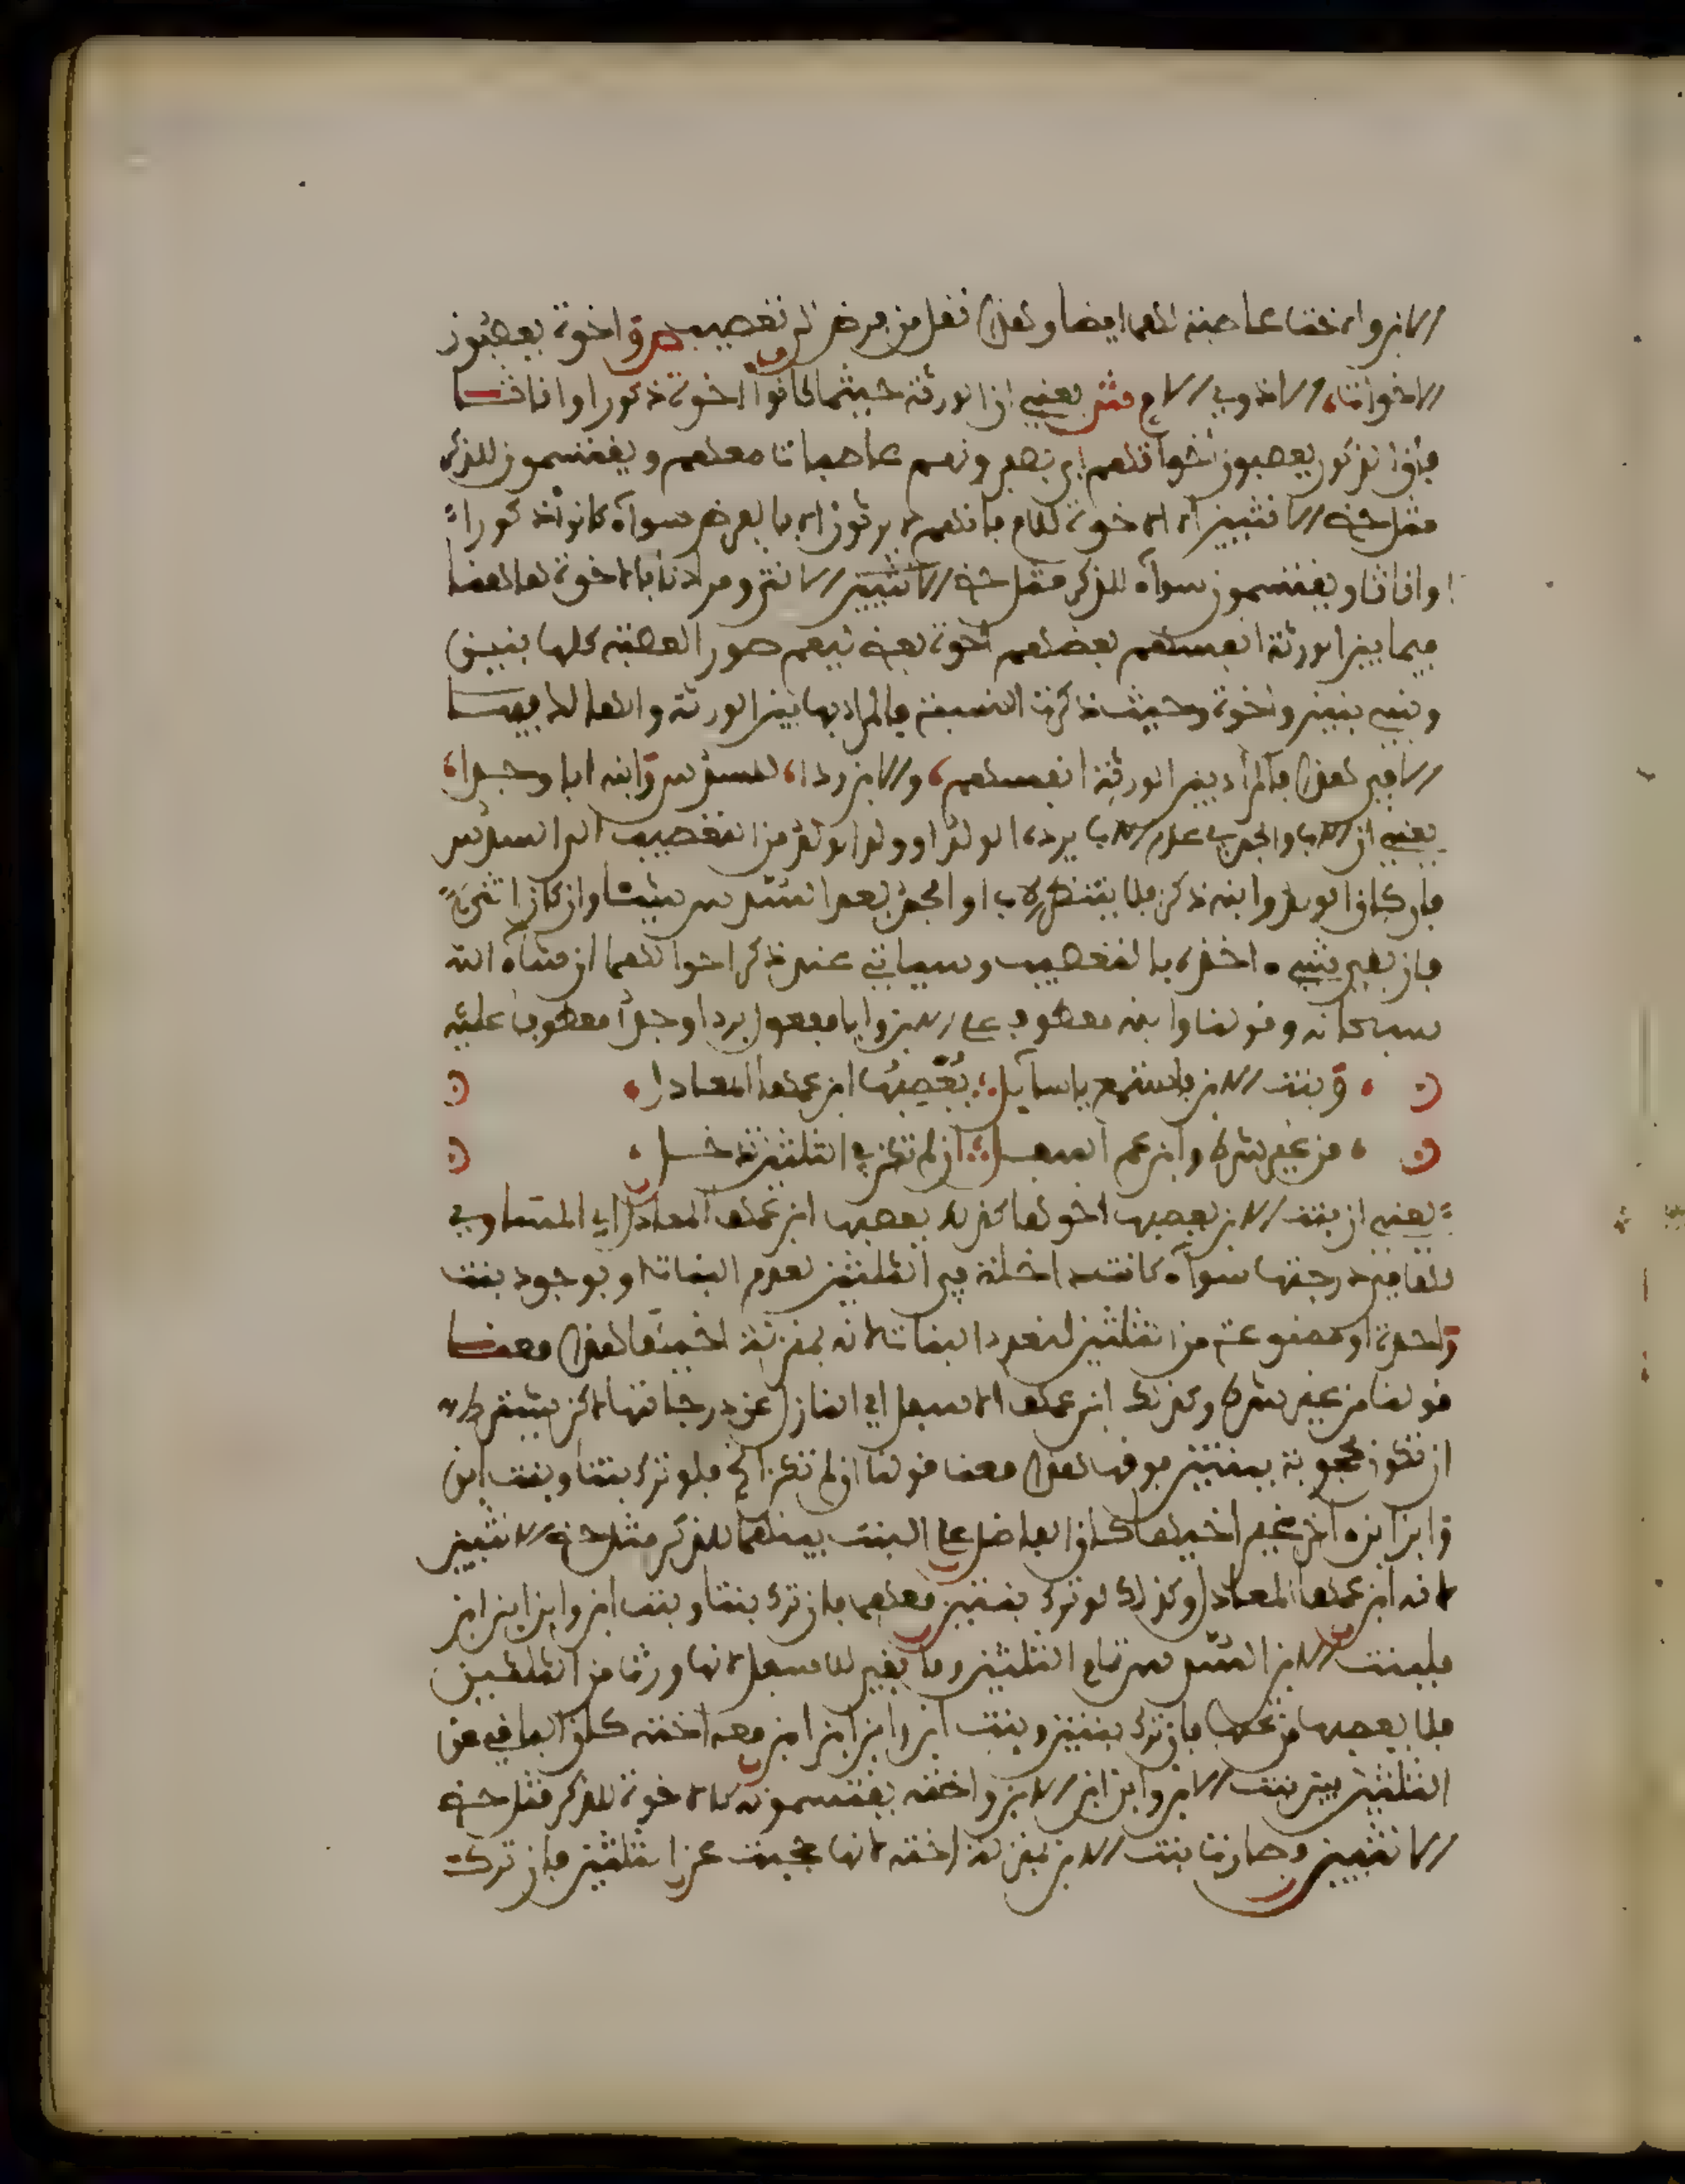 الابن والاخت عاصبة لهما ايضا ولهذا نقل من فرض الى تعصيب ص واخوة يعصبون
الاخوات، الا ذوي الام ش يعني ان الورثة حيثما كانوا اخوة ذكورا واناثا
فان الذكور يعصبون اخواتهم اي يصيرونهم عاصبات معهم ويقتسمون للذكر
مثل حظ الانثيين الا الاخوة للام فانهم لا يرثون الا بالفرض سوآء كانوا ذكورا
او اناثا ويقتسمون سوآء للذكر مثل حظ الانثيين الانثى ومرادنا بالاخوة هاهنا
فيما بين الورثة انفسهم بعضهم اخوة بعض فيعم صور العصبة كلها بنين
وبني بنين واخوة وحيث ذكرت النسبة فالمراد بها بين الورثة والهالك
الا في هذا فالمراد بين الورثة انفسهم، والابن ردا، للسدس وابنه ابا وجدا،
يعني ان الاب والجد في عدم الاب يرده الولد او ولد الولد من التعصيب الى السدس
فان كان الولد وابنه ذكرا فلا ينتظر الاب او الجد بعد السدس شيئا وان كان انثى
فان بقي شيء اخذه بالتعصيب وسياتي عند ذكر احوالهما ان شآء الله
سبحانه وقولنا وابنه معطوف على الابن وابا مفعول بردا وجدا معطوف عليه
وبنت الابن فاستمع يا سآيل ؛ يعصبها ابن عمها المعادل
من غير شرط وابن عم اسفل ؛ ان لم تكن في الثلثين تدخل
يعني ان بنت الابن يعصبها اخوها كذلك يعصبها ابن عمها المعادل اي المساوي
لها في درجتها سوآء كانت داخلة في الثلثين لعدم البنات او بوجود بنت
واحدة او ممنوعة من الثلثين لتعدد البنات لانه بمنزلة اخيها هذا معنى
قولنا من غير شرط وكذلك ابن عمها الاسفل اي النازل عن درجاتها لاكن يشترط
ان تكون محجوبة ببنتين فوقها هذا معنى قولنا ان لم تكن الخ فلو ترك بنتا وبنت ابن
وابن ابن اخر غير اخيها كان الفاضل على البنت بينهما للذكر مثل حظ الانثيين
لانه ابن عمها المعادل وكذلك لو ترك بنتين معهم فان ترك بنتا وبنت ابن وابن ابن ابن
فلبنت الابن السدس تمام الثلثين وما بقي للاسفل لانها ورثت من الثلثين
فلا يعصبها من تحتها فان ترك بنتين وبنت ابن وابن ابن ابن معه اخته كان الباقي عن
الثلثين بين بنت الابن وابن ابن الابن واخته يقتسمونه كالاخوة للذكر مثل حظ
الانثيين وصارت بنت الابن بمنزلة اخته لانها حجبت عن الثلثين فان ترك